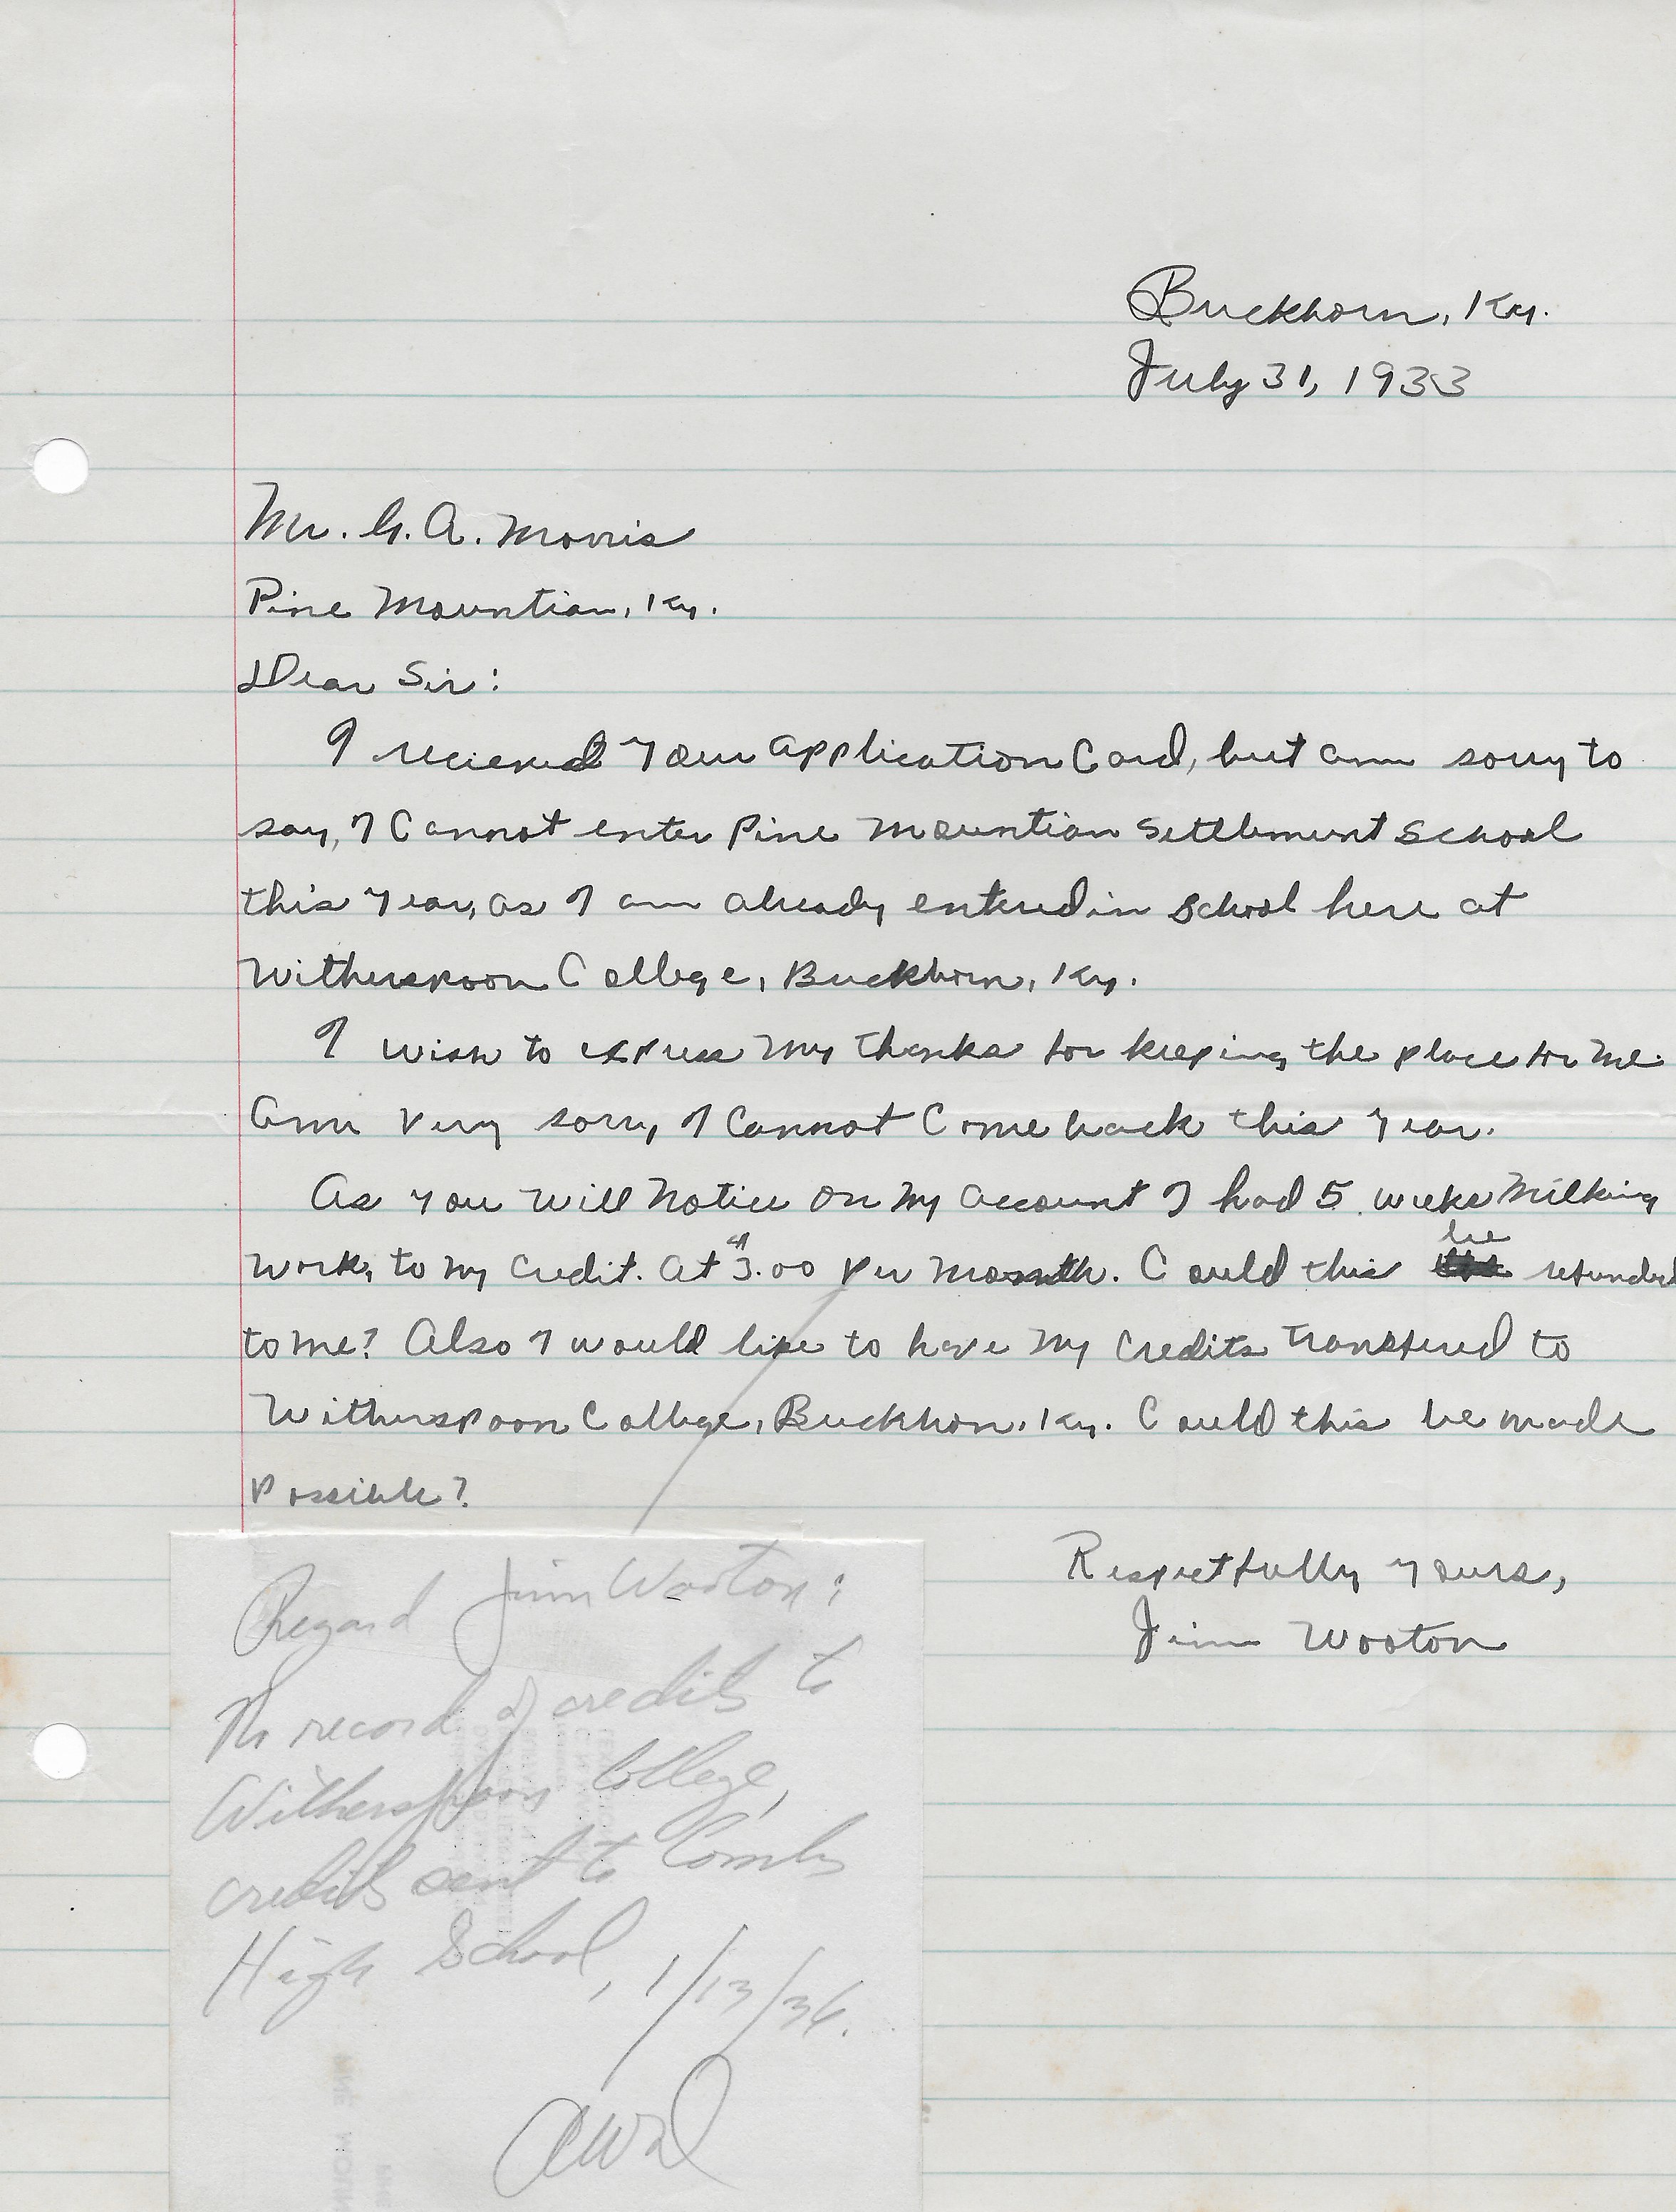 Buckhorn, Ky.
July 31, 1933
Mr. G. A. Morris
Pine Mountian, Ky.
Dear Sir:
I recieved your application Card, but am sorry to
say, I Cannot enter Pine Mountian Settlement School
this year, as I am already entered in school here at
Witherspoon College, Buckhorn, Ky.
I wish to express my thanks for keeping the place for me.
Am very sorry I Cannot Come back this year.
As you will notice on my account I had 5 weeks milking
work, to my credit. At $3.00 per month. Could this be refunded
to me? Also I would like to have my credits transfered to
Witherspoon College, Buckhorn, Ky. Could this be made
possible?
Respectfully yours,
Jim Wooton
Regard Jim Wooton:
No record of credits to
Witherspoon College,
credits sent to Combs
High School, 1/13/36.